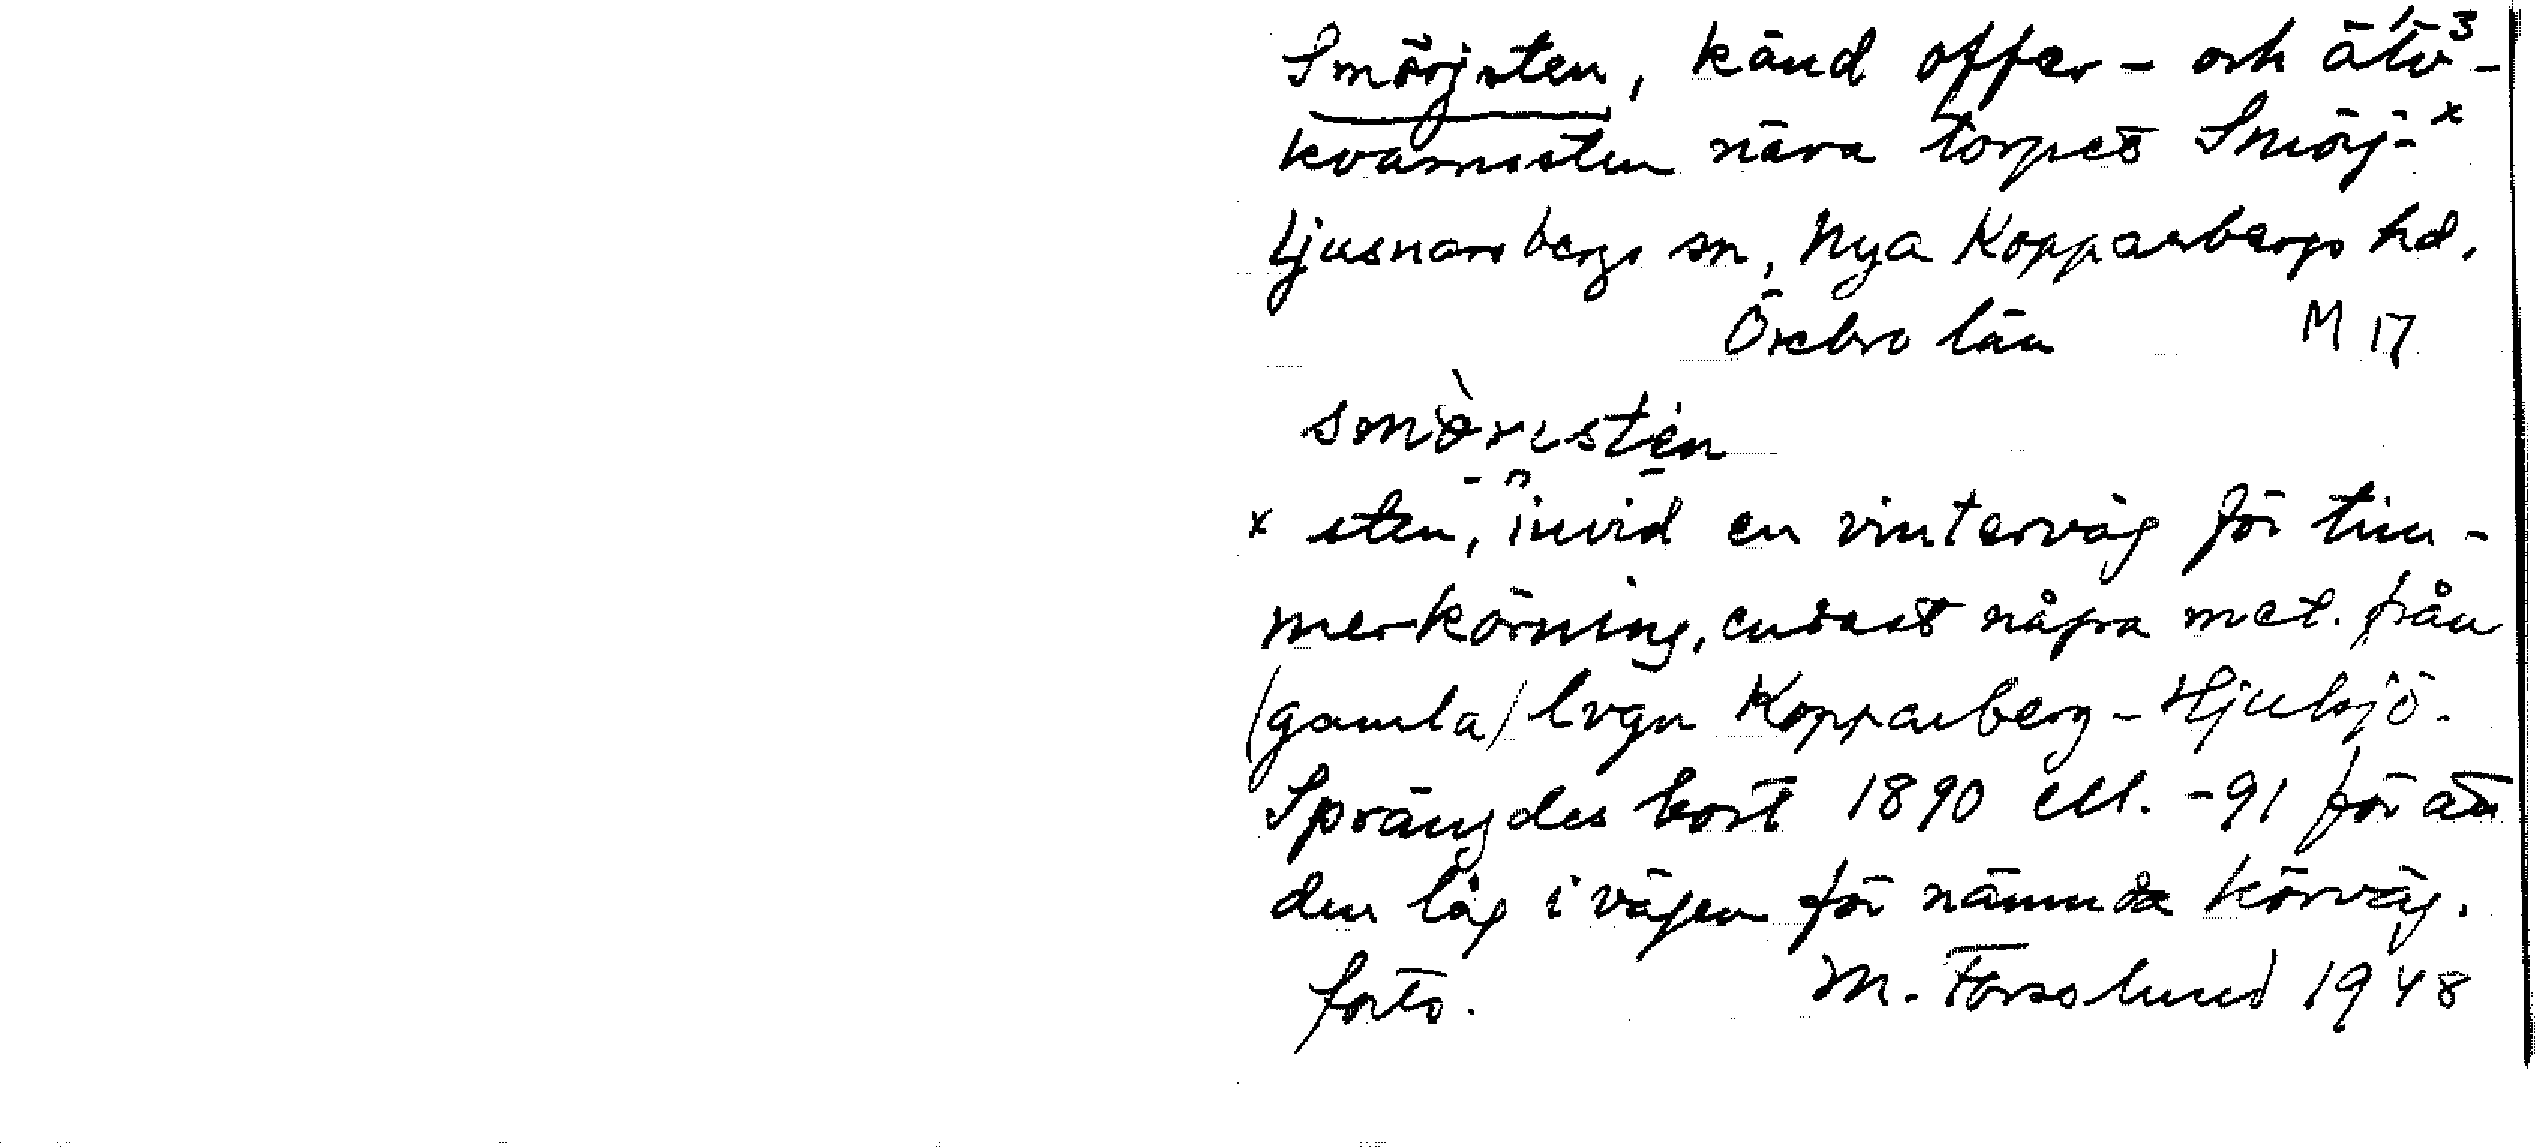 Smörjsten, känd offer- och älv-
kvarnsten nära torpet Smörj-x
Ljusnarsbergs sn, Nya Kopparbergs hd.
Örebro län M 17
x sten, invid en vinterväg för tim-
merkörning, endast några met. från
(gamla) lvgn Kopparberg - Hjulsjö.
Sprängdes bort 1890 ell. -91 för att
den låg i vägen för nämnda körväg.
forts. M. Forslund 1948